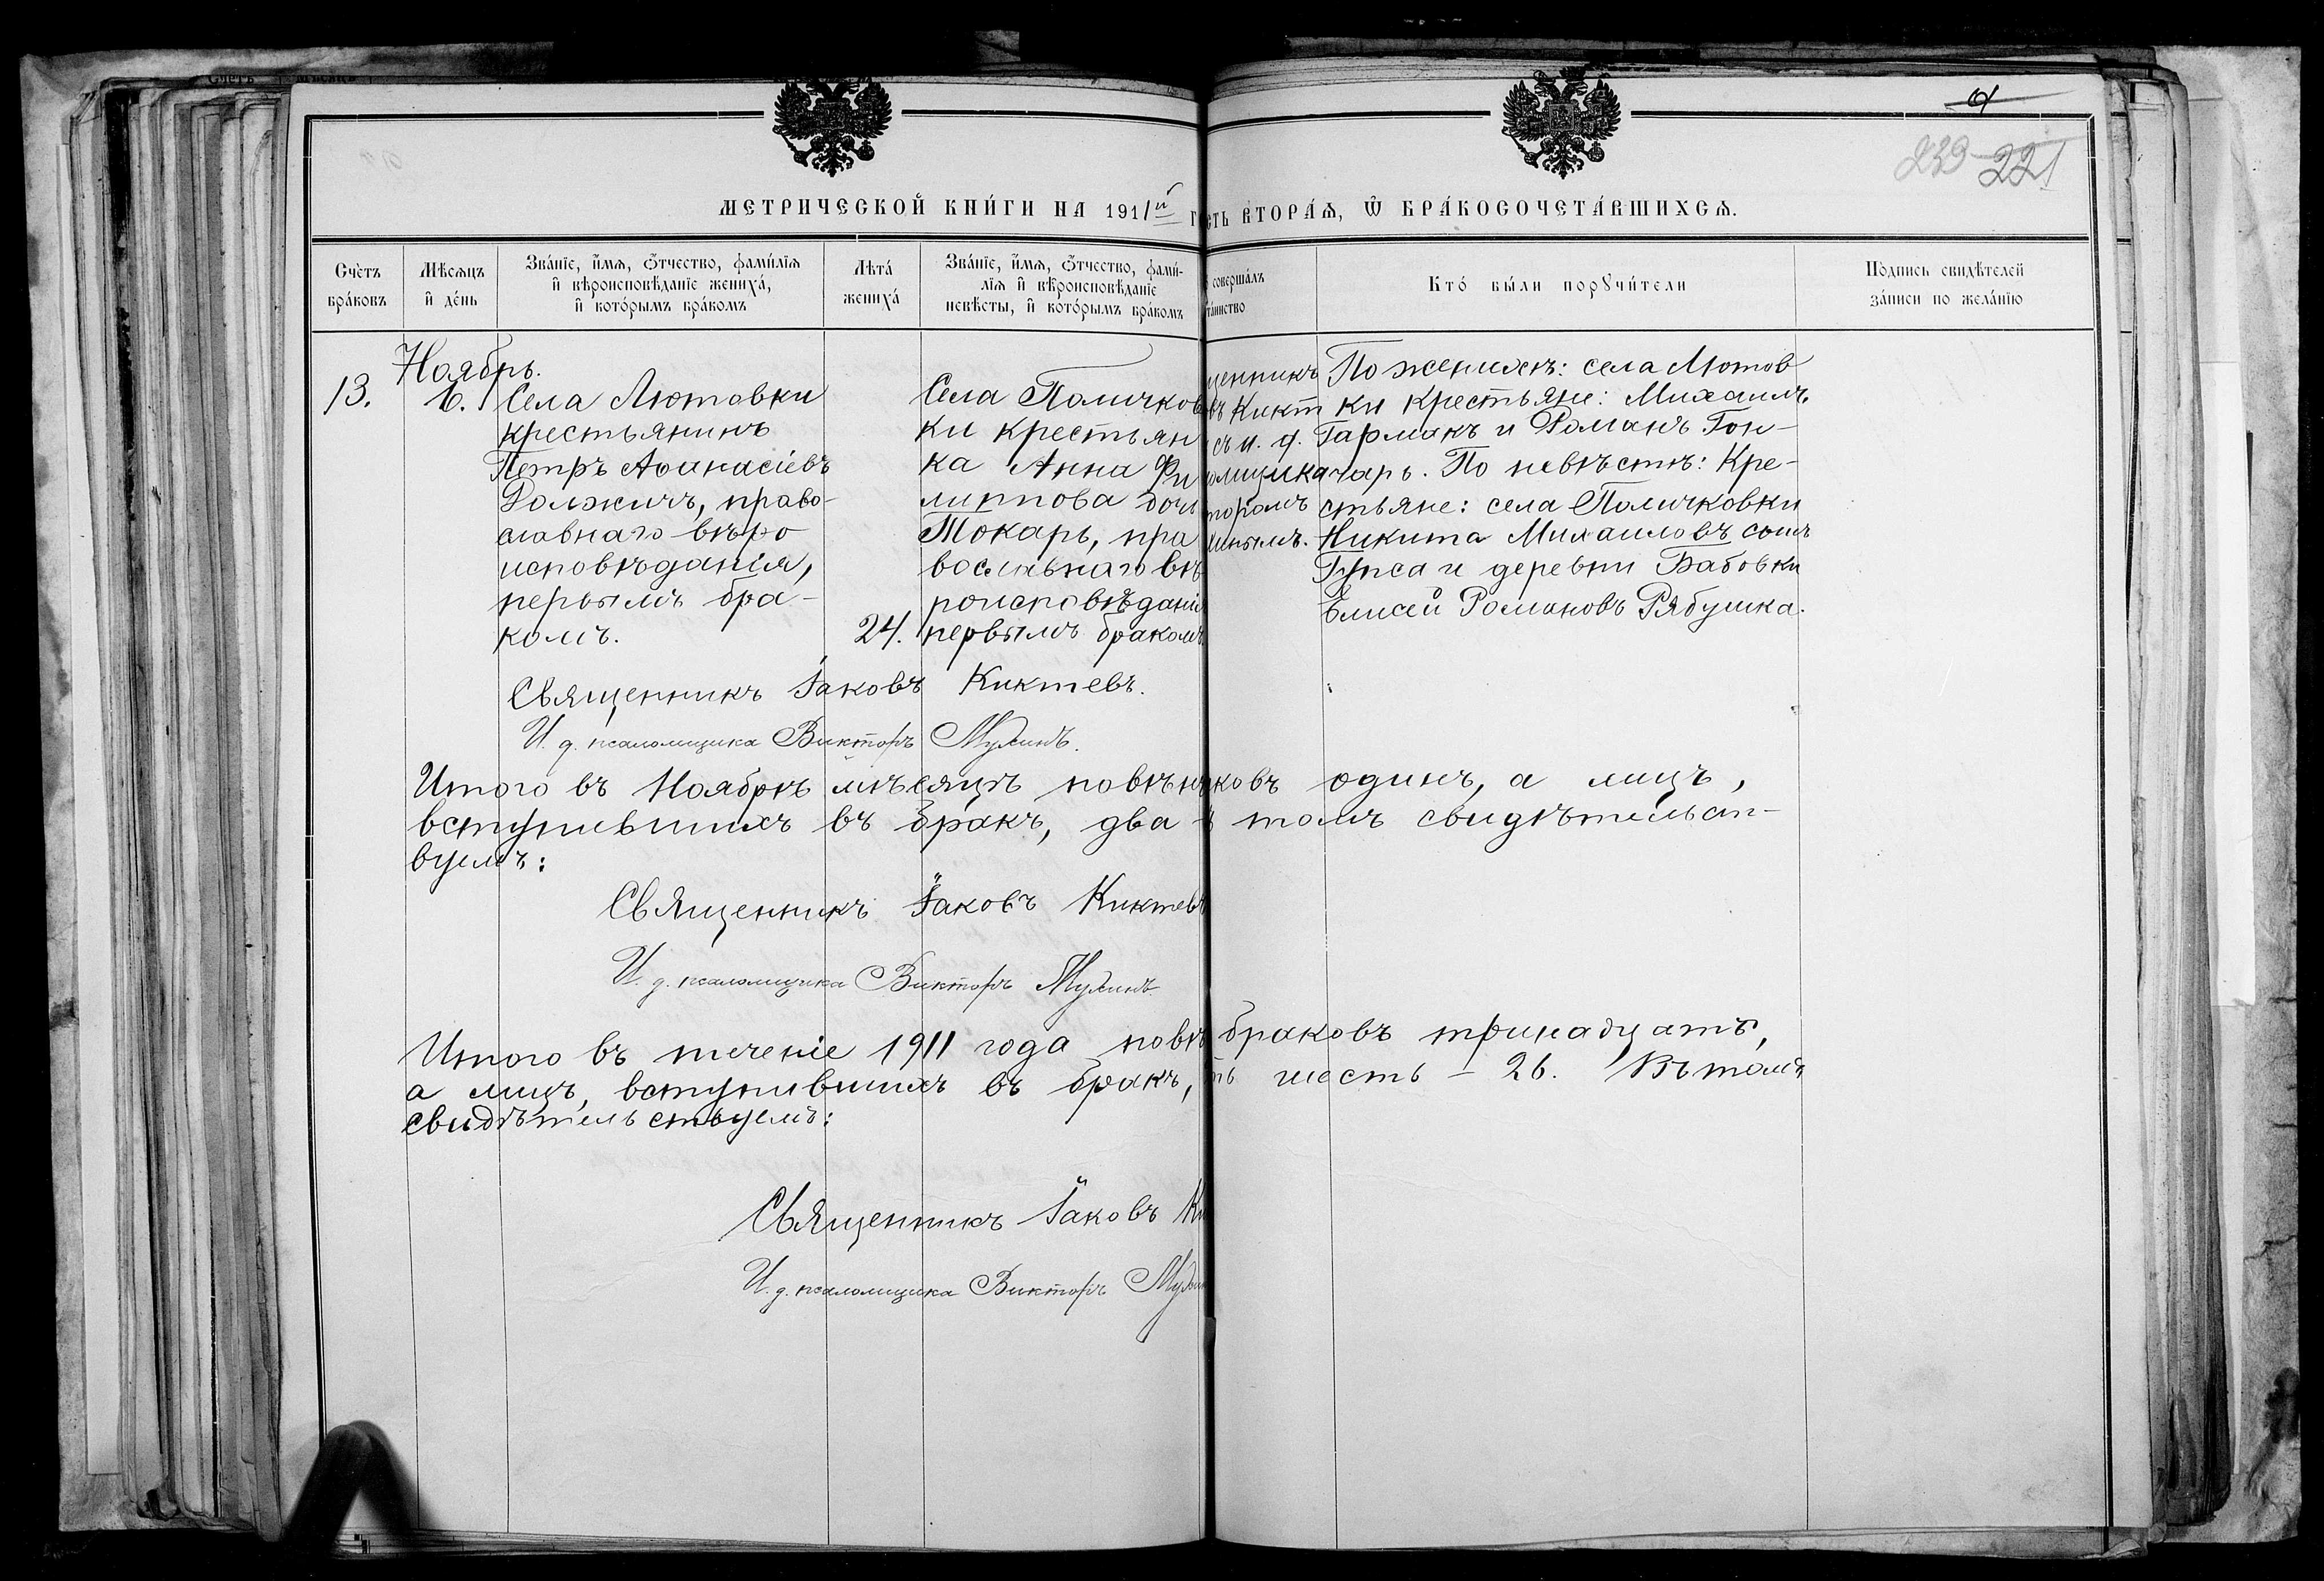 221
МЕТРИЧЕСКОЙ КНИ́ГИ НА 1911й
ВТОРА́Ѧ, Ѿ БРА́КОСОЧЕТА́ВШИХСѦ.
Счетъ бра́ковъ
Мѣсяцъ и де́нь
Зва́нїе, и́мя, о́тчество, фами́лїя и вѣроисповѣданїе жениха́, и кото́рымъ бра́комъ
Лѣта́ жениха́
Зва́нїе, и́мя, о́тчество, фами́лїя и вѣроисповѣданїе невѣсты, и кото́рымъ бра́комъ
соверша́лъ таинство
Кто́ бы́ли порꙋчи́тели
Подпись свидѣтелей за́писи по жела́нїю
13.
Ноябрь.
6.
Села Лютовки
крестьянинъ
Петръ Аѳанасіевъ
право-
славнаго вѣро
исповѣданія,
первымъ бра-
комъ.
24.
Села Поличков
ки крестьян
ка Анна Фи
липпова дочь
Токарь, пра
вославнаго вѣ
роисповѣданія
первымъ бракомъ
щенникъ
въ Кикт
съ и. д.
ломщика
торомъ
инымъ.
По женихѣ: села Лютов
ки крестьяне: Михаилъ
Гармакъ и Романъ Гон-
чарь. По невѣстѣ: Кре-
стьяне: села Поличковки
Никита Михаиловъ сынъ
и деревни Бабовки
Елисей Романовъ Рябушка.
Священникъ Іаковъ Киктевъ.
И. д. псаломщика Викторъ Мухинъ.
Итого въ Ноябрѣ мѣсяцѣ повѣнч
ковъ одинъ, а лицъ,
вступившихъ въ бракъ, два
томъ свидѣтельст-
вуемъ:
Священникъ Іаковъ Киктевъ
И. д. псаломщика Викторъ Мухинъ
Итого въ теченіе 1911 года повѣ
браковъ тринадцать,
а лицъ, вступившихъ въ бракъ,
ть шесть - 26. Въ томъ
свидѣтельствуемъ:
Священникъ Іаковъ Ки
И. д. псаломщика Викторъ Мухин